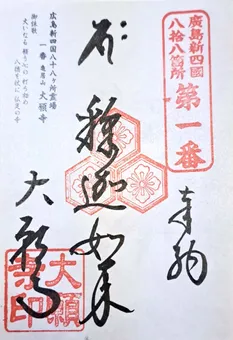 廣島新四國
八拾八箇所
第一番
奉拝
釋迦如来
大願寺
広島新四国八十八ヶ所霊場
一番 亀居山 大願寺
御詠歌
大願寺印